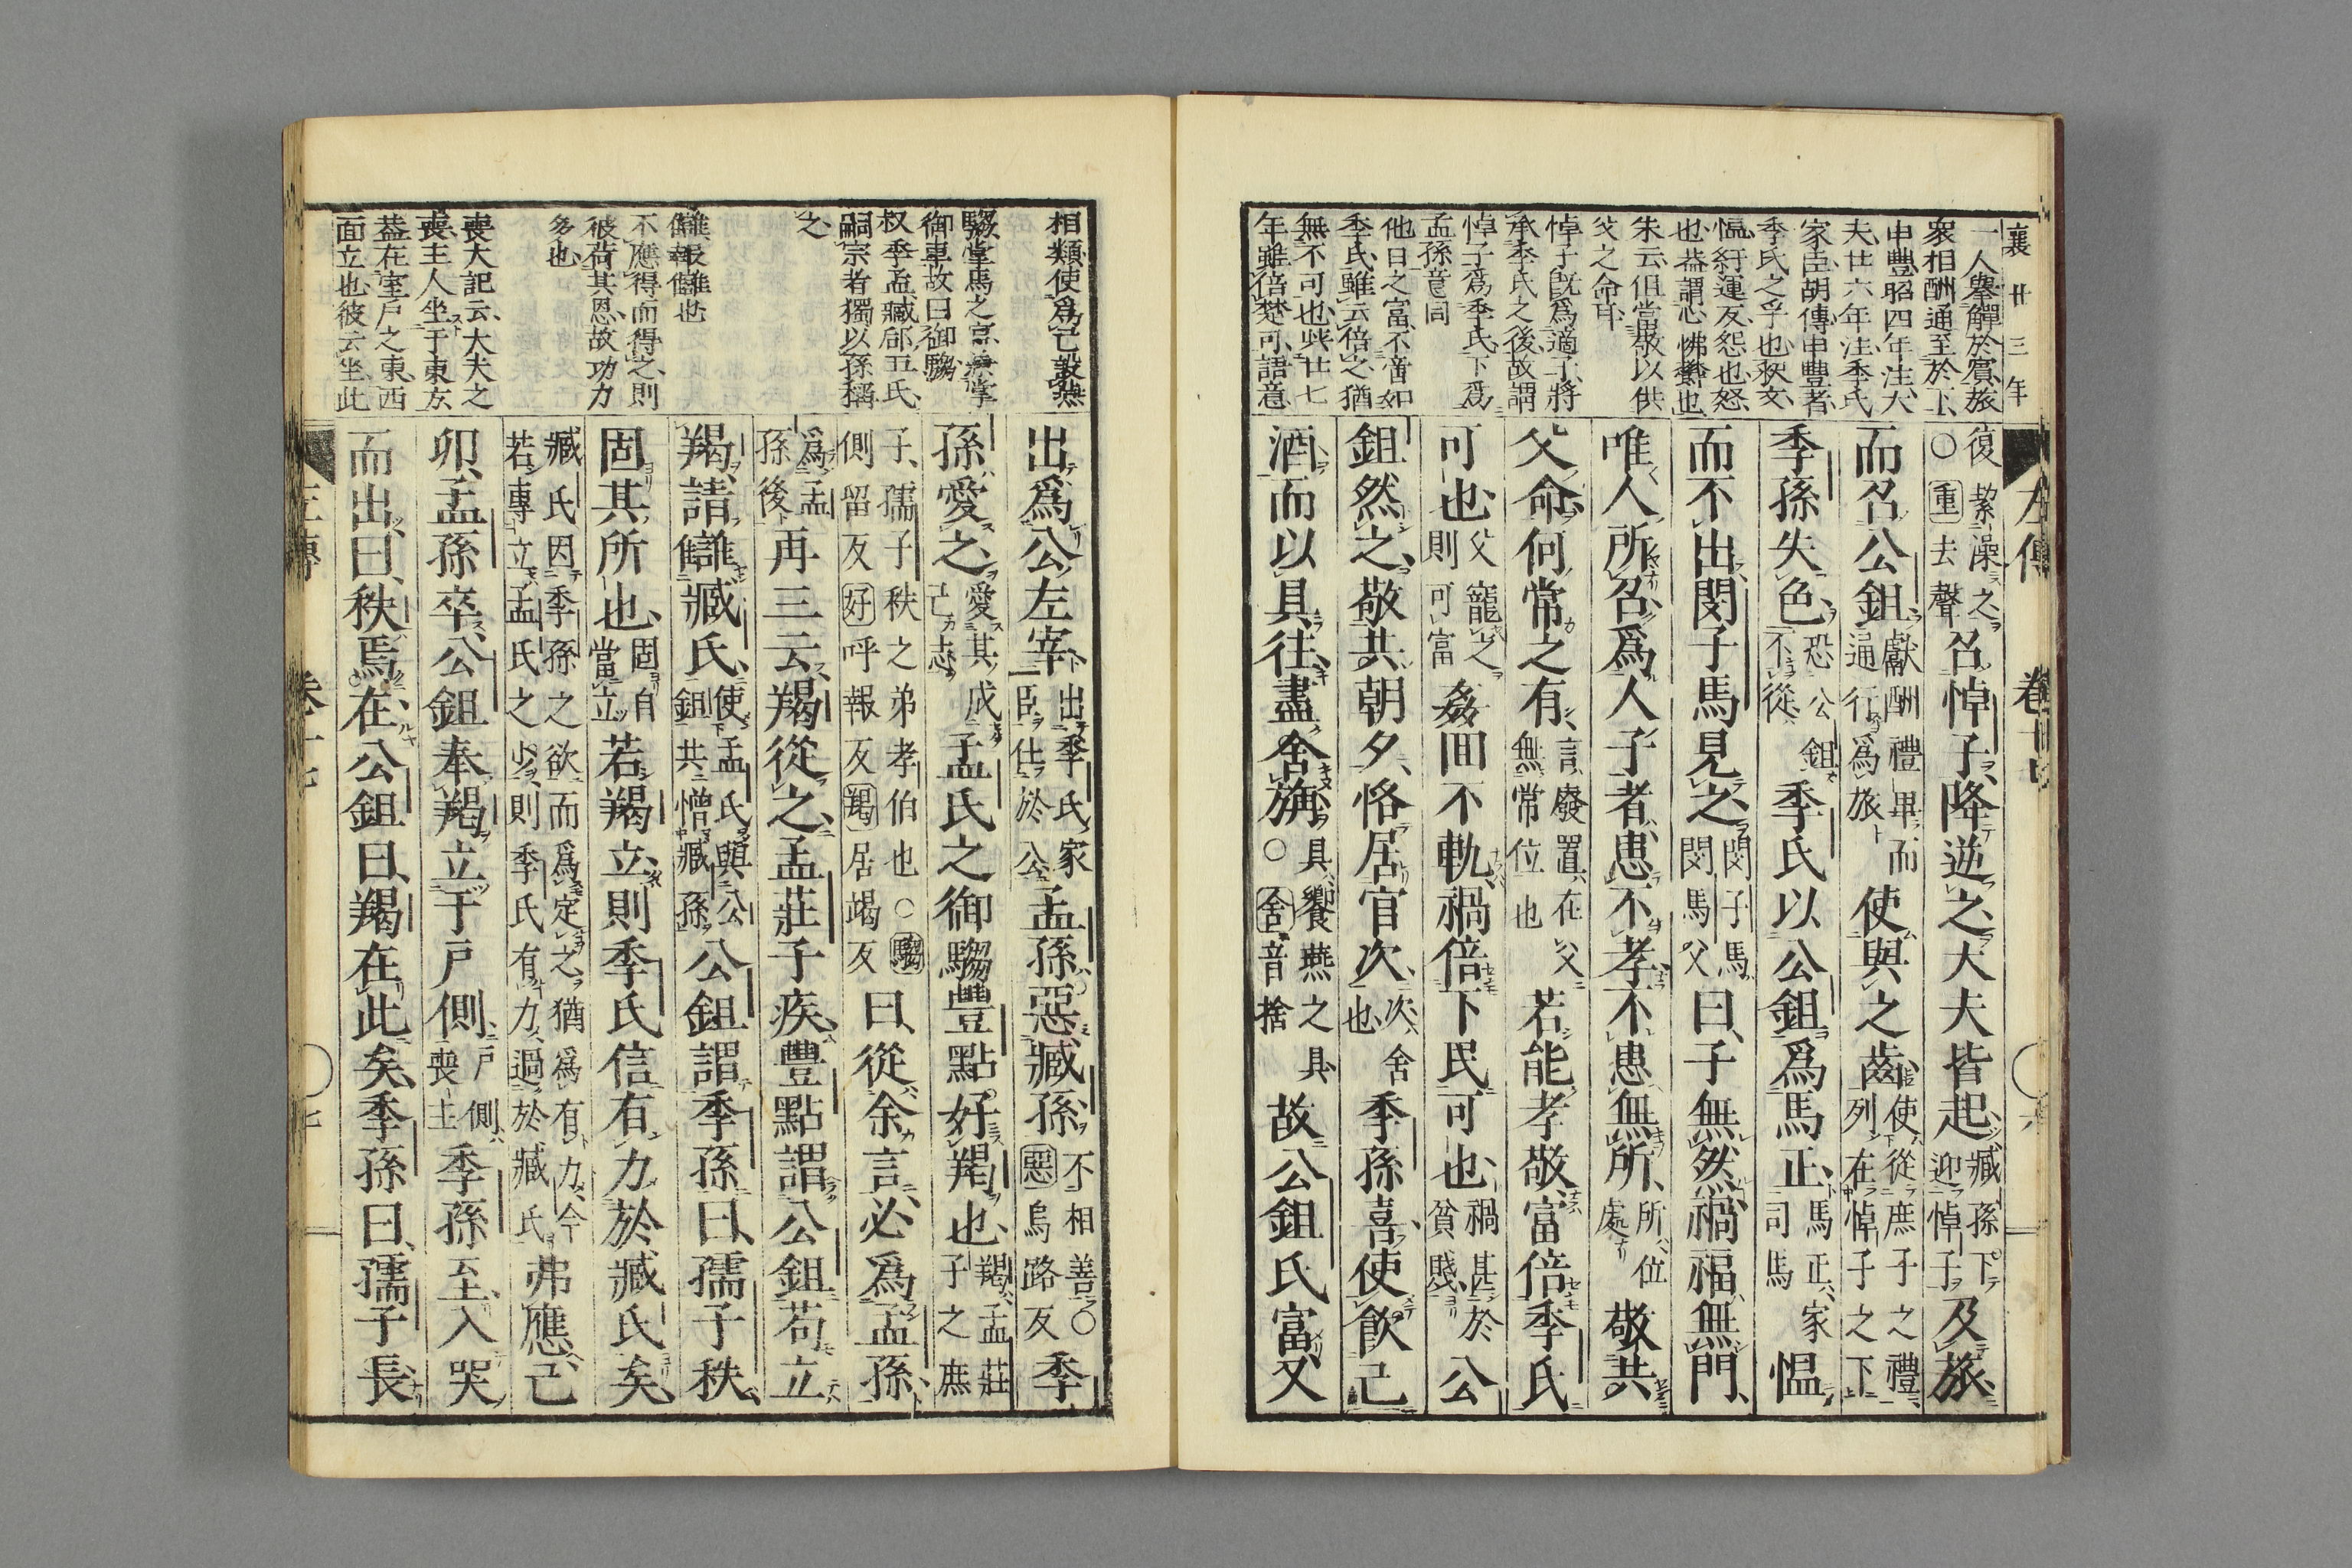 襄廿三年
一人擧觶於賓旅
衆相酬通至於下
申豐昭四年注大
夫廿六年注季氏
家臣胡傳申豐者
季氏之孚也秋文
慍紆運反怨也怒
也葢謂心怫鬱也
朱云但當敬以供
父之命耳
悼子既爲適子將
承季氏之後故謂
悼子爲季氏下爲
孟孫意同
他日之富不啻如
季氏雖云倍之猶
無不可也柴廿七
年雖倍楚可語意
左傳
復絜澡之
○重去聲
召悼子降逆之大夫皆起
臧孫下
迎悼子
及旅
而召公鉏
獻酬禮畢而
通行爲旅
使與之齒
使從庶子之禮
列在悼子之下
季孫失色
恐公鉏
不從
季氏以公鉏爲馬正
馬正家
司馬
慍
而不出閔子馬見之
閔子馬
閔馬父
曰子無然禍福無門
唯人所召爲人子者患不孝不患無所
所位
處
敬共
父命何常之有
言廢置在父
無常位也
若能孝敬富倍季氏
可也
父寵之
則可富
姦回不軌禍倍下民可也
禍甚於
貧賤
公
鉏然之敬共朝夕恪居官次
次舍
也
季孫喜使飮己
酒而以具往盡舍旃
具饗燕之具
○舍音捨
故公鉏氏富又
相類使爲己設燕
騶掌馬之官兼掌
御車故曰御騶
叔季孟臧郈五氏
嗣宗者獨以孫稱
之
讎報讎也
不應得而得之則
彼荷其恩故功力
多也
喪大記云大夫之
喪主人坐于東方
葢在室戶之東西
面立也彼云坐此
出爲公左宰
出季氏家
臣仕於公
孟孫惡臧孫
不相善○
惡烏路反
季
孫愛之
愛其成
己志
孟氏之御騶豐點好羯也
羯孟莊
子之庶
子孺子秩之弟孝伯也○騶
側留反好呼報反羯居竭反
曰從余言必爲孟孫
爲孟
孫後
再三云羯從之孟莊子疾豐點謂公鉏苟立
羯請讎臧氏
使孟氏與公
鉏共憎臧孫
公鉏謂季孫曰孺子秩
固其所也
固自
當立
若羯立則季氏信有力於臧氏矣
臧氏因季孫之欲而爲定之猶爲有力今
若專立孟氏之少則季氏有力過於臧氏
弗應己
卯孟孫卒公鉏奉羯立于戶側
戶側
喪主
季孫至入哭
而出曰秩焉在公鉏曰羯在此矣季孫曰孺子長